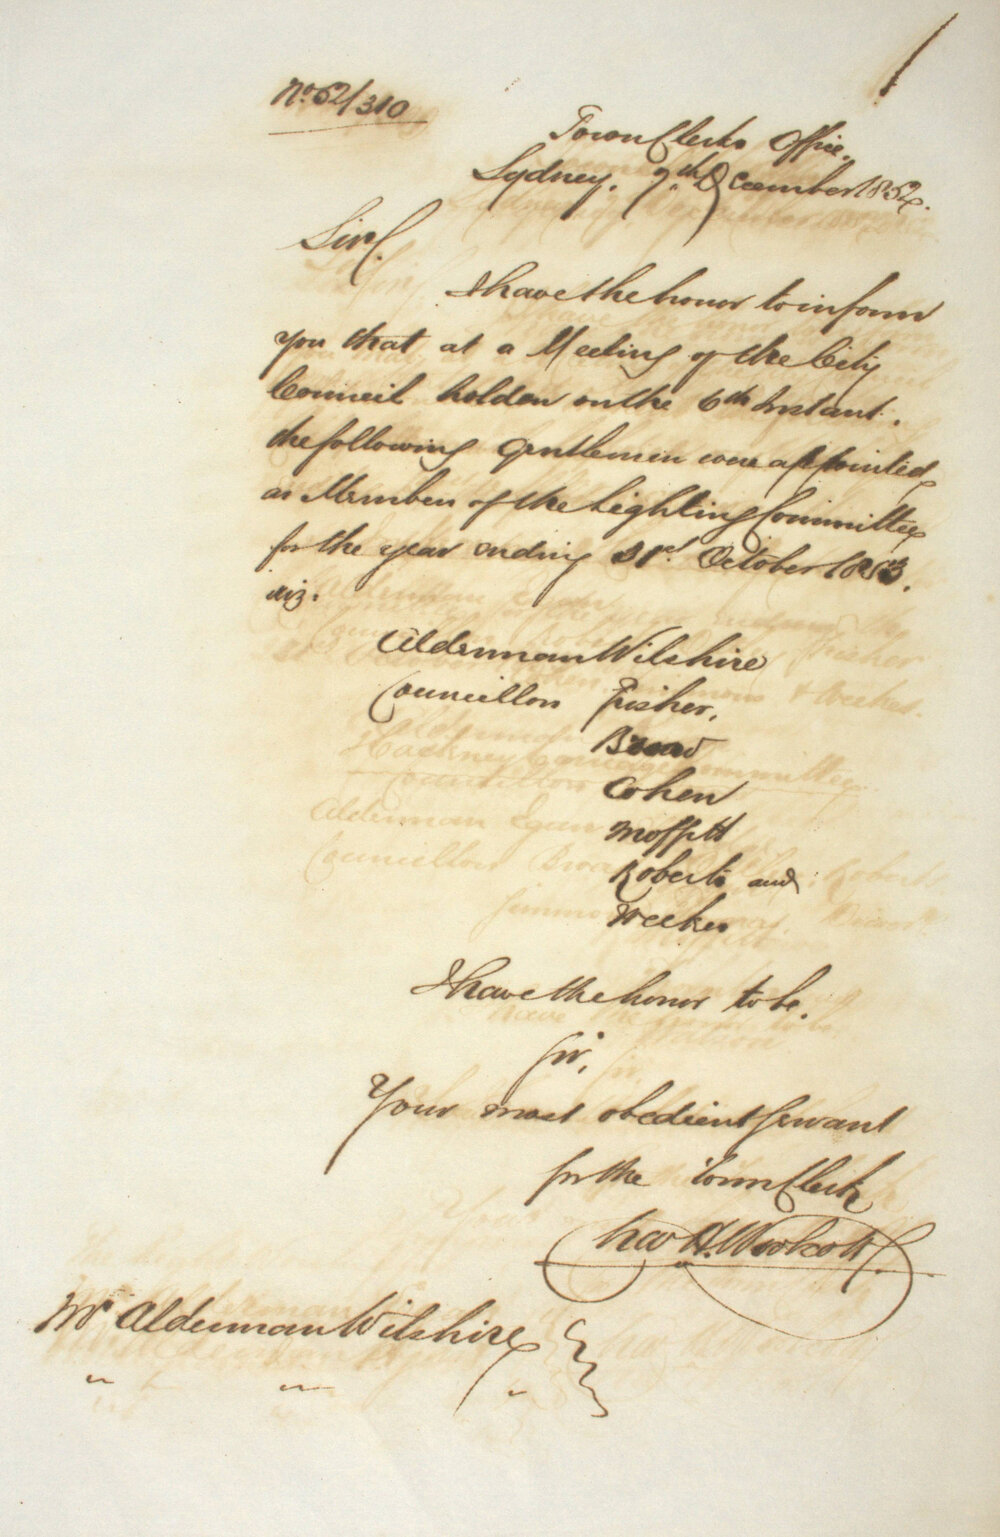 No. 52/310
Town Clerks Office.
Sydney. 7th December 1852.
Sir.
I have the honor to inform
you that at a Meeting of the City
Council holden on the 6th Instant.
the following Gentlemen were appointed
as Members of the Lighting Committee
for the year ending 31st October 1853.
viz.
Alderman Wilshire
Councillors Fisher,
Broad
Cohen
Moffitt
Roberts and
Weekes
I have the honor to be.
Sir,
Your most obedient Servant
for the Town Clerk
Chas H. Woolcott.
Mr Alderman Wilshire
" " "